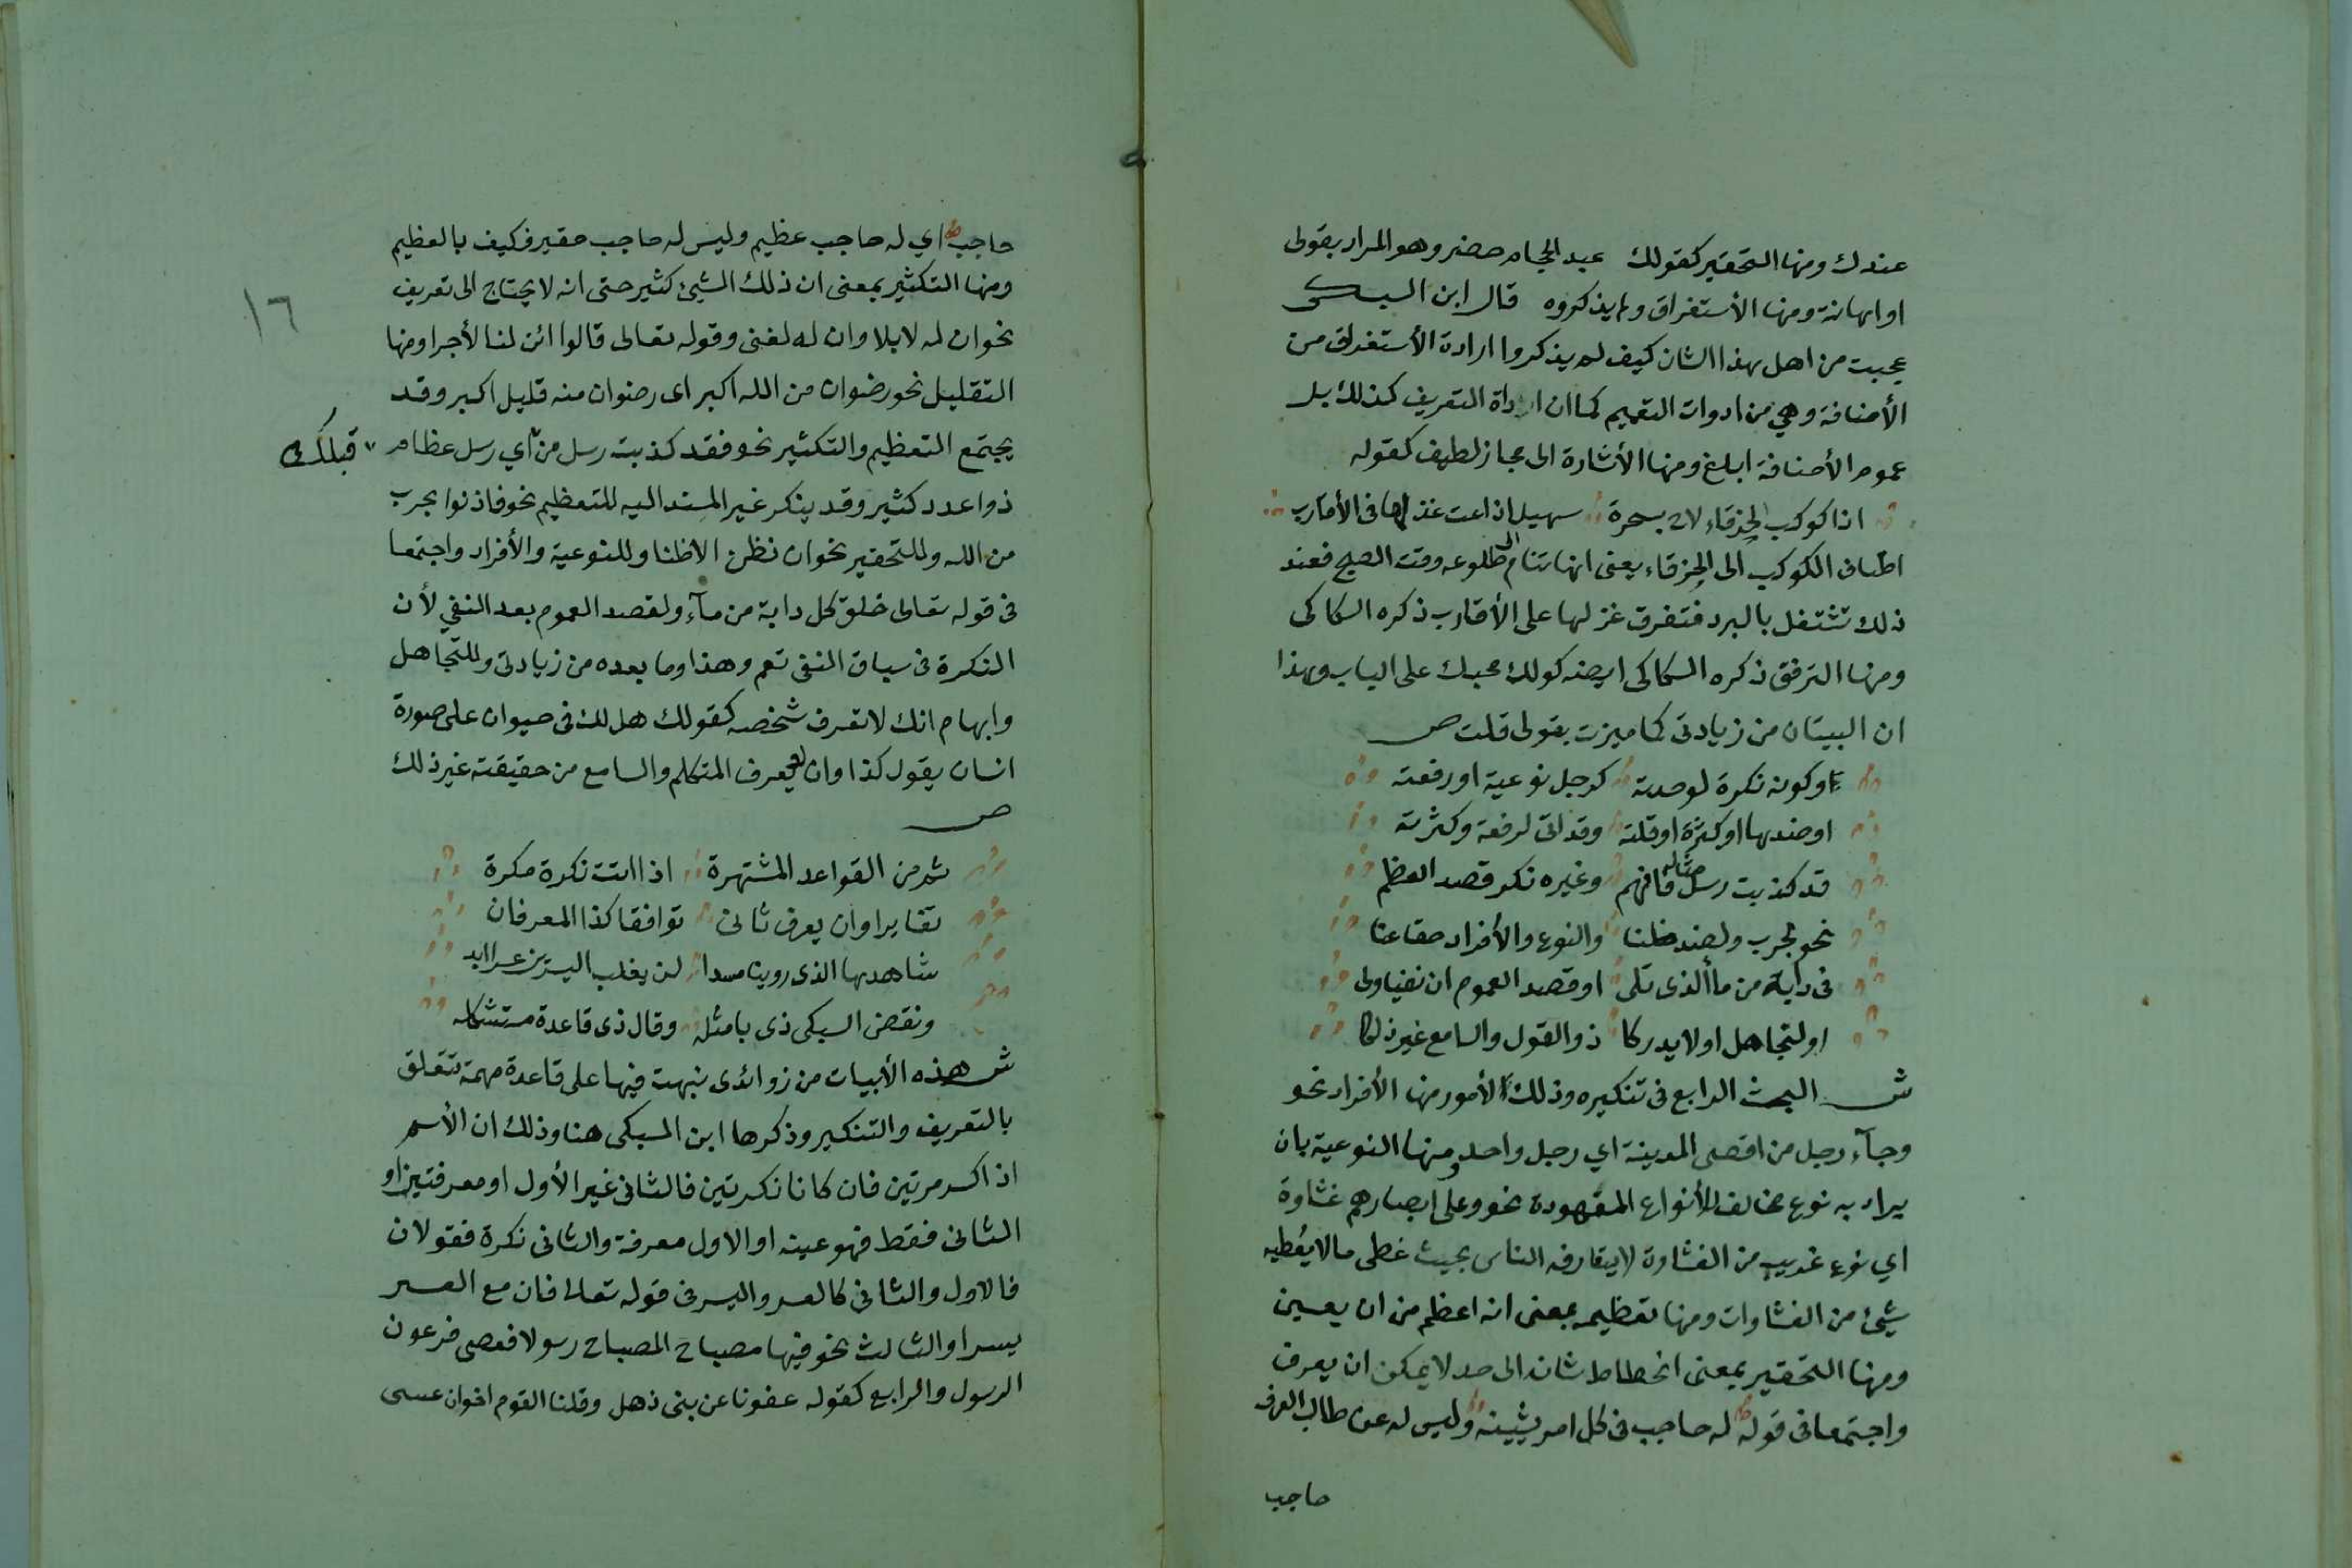 عندك ومنها التحقير كقولك عبد الحجام حضر وهو المراد بقولى
او اهانة ومنها الأستغراق ولم يذكروه قال ابن السبكى
عجبت من اهل هذا الشان كيف لم يذكروا ارادة الأستغراق من
الأضافة وهي من ادوات التعميم كما ان اداة التعريف كذلك بل
عموم الأضافة ابلغ ومنها الأشارة الى مجاز لطيف كقوله
اذا كوكب الخرقاء لاح بسحرة سهيل اذاعت غزلها فى الأقارب
اضاف الكوكب الى الخرقاء يعنى انها تنام الى طلوعه وقت الصبح فعند
ذلك تشتغل بالبرد فتفرق غزلها على الأقارب ذكره السكاكى
ومنها الترفق ذكره السكاكى ايضه كولك محبك على الباب وهذا
ان البيتان من زيادتى كما ميزت بقولى قلت ص
وكونه نكرة لوحدة كرجل نوعية او رفعة
او ضدها او كثرة او قلته وقد اتى لرفعة وكثرته
قد كذبت رسل مثاله فافهم وغيره نكر قصد العظم
نحو لحرب ولضد ظنا والنوع والأفراد حقا عنا
فى دابة من مأ الذى تلى او قصد العموم ان نفيا ولى
او لتجاهل او لا يدركا ذو القول والسامع غير ذلكا
ش البحث الرابع فى تنكيره وذلك لأمور منها الأفراد نحو
وجآء رجل من اقصى المدينة اي رجل واحد ومنها النوعية بان
يراد به نوع مخالف للأنواع المعهودة نحو وعلى ابصارهم غشاوة
اي نوع غريب من الغشاوة لا يتعارفه الناس بحيث غطى مالا يُغطيه
شيئ من الغشاوات ومنها تعظيمه بمعنى انه اعظم من ان يعين
ومنها التحقير بمعنى انحطاط شانه الى حد لا يمكن ان يعرف
واجتمعا فى قوله له حاجب فى كل امر يشينه وليس له عن طالب العرف
حاجب
حاجب اي له حاجب عظيم وليس له حاجب حقير فكيف بالعظيم
ومنها التكثير بمعنى ان ذلك الشيئ كثير حتى انه لا يحتاج الى تعريف
١٦
نحو ان له لابلا وان له لغنى وقوله تعالى قالوا ائن لنا لأجرا ومنها
التقليل نحو رضوان من الله اكبر اى رضوان منه قليل اكبر وقد
يجتمع التعظيم والتكثير نحو فقد كذبت رسل من اي رسل عظام
قبلك
ذوا عدد كثير وقد ينكر غير المسند اليه للتعظيم نحو فاذنوا بحرب
من الله وللتحقير نحو ان نظن الا ظنا وللنوعية والأفراد واجتمعا
فى قوله تعالى خلق كل دابة من مآء ولقصد العموم بعد النفي لأن
النكرة فى سياق النفى تعم وهذا وما بعده من زيادتى وللتجاهل
وايهام انك لا تعرف شخصه كقولك هل لك فى حيوان على صورة
انسان يقول كذا وان لم يعرف المتكلم والسامع من حقيقته غير ذلك
ص
ثم من القواعد المشتهرة اذا اتت نكرة مكررة
تغايرا وان يعرف ثانى توافقا كذا المعرفان
شاهدها الذى روينا مسندا لن يغلب اليسرين عسر ابدا
ونقض السبكى ذى بامثله وقال ذى قاعدة مستشكله
ش هذه الأبيات من زوائدى نبهت فيها على قاعدة مهمة تتعلق
بالتعريف والتنكير وذكرها ابن السبكى هنا وذلك ان الأسم
اذا كرر مرتين فان كانا نكرتين فالثانى غير الأول او معرفتين او
الثانى فقط فهو عينه او الاول معرفة والثانى نكرة فقولان
فالاول والثانى كالعسر واليسر فى قوله تعالى فان مع العسر
يسرا والثالث نحو فيها مصباح المصباح رسولا فعصى فرعون
الرسول والرابع كقوله عفونا عن بنى ذهل وقلنا القوم اخوان عسى